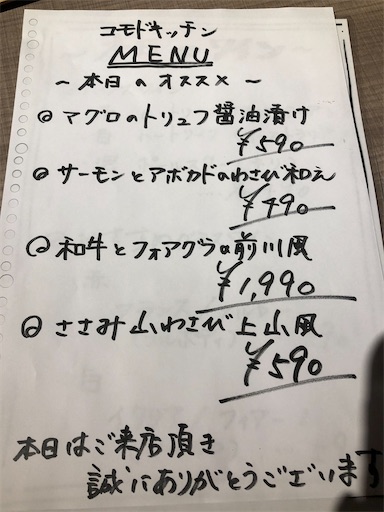 コモドキッチン
MENU
〜本日のオススメ〜
◎マグロのトリュフ醤油漬け
¥590
◎サーモンとアボカドのわさび和え
¥490
◎和牛とフォアグラの前川風
¥1,990
◎ささみ山わさび上山風
¥590
本日はご来店頂き
誠にありがとうございます